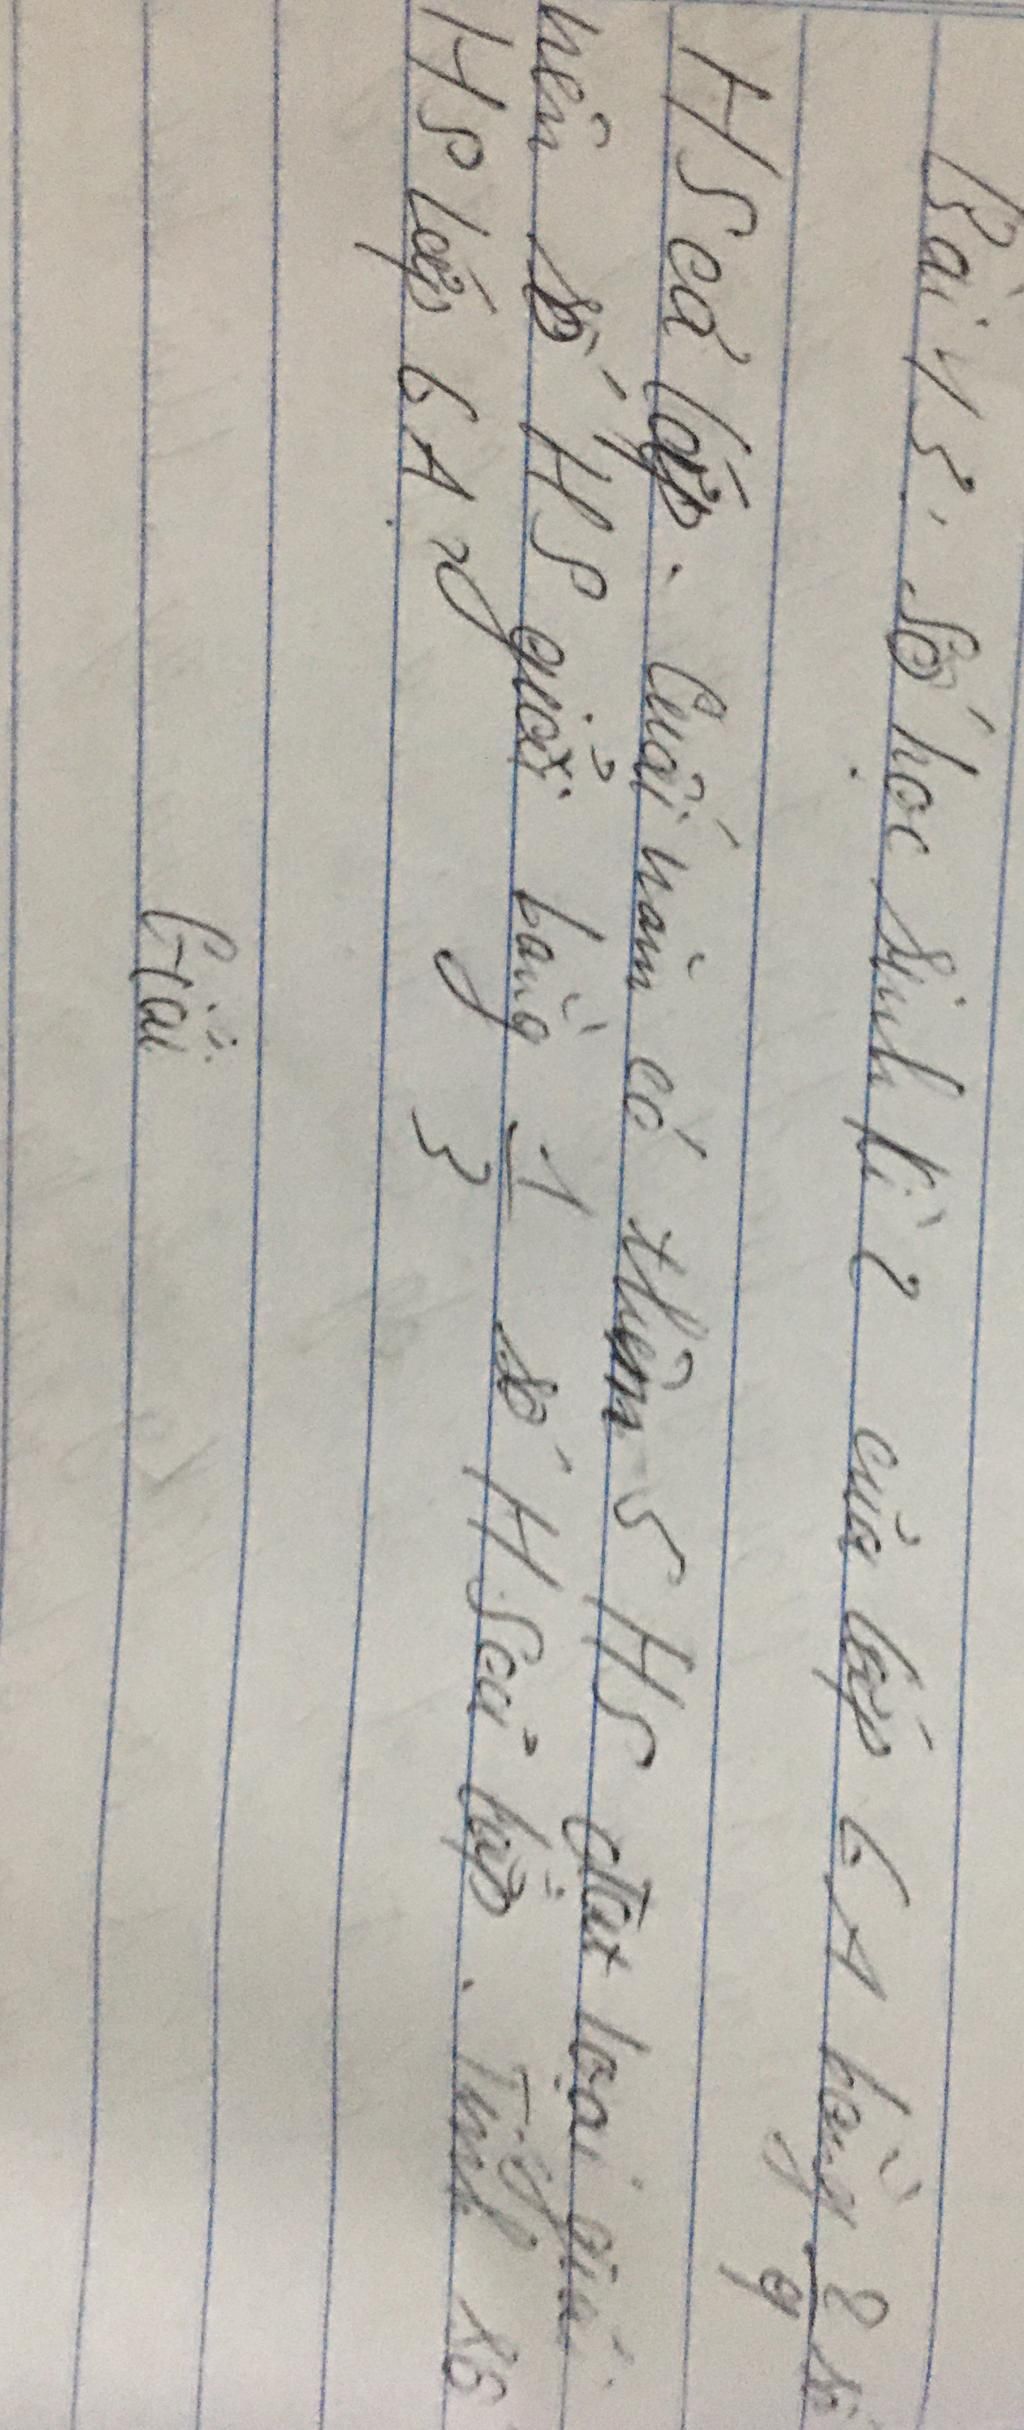 Bài 13. Số học sinh kì 2 của lớp 6A bằng 2/9 số
HS cả lớp. Cuối năm có thêm 5 HS đạt loại giỏi
nên số HS giỏi bằng 1/3 số HS cả lớp. Tính số
HS lớp 6A?
Giải